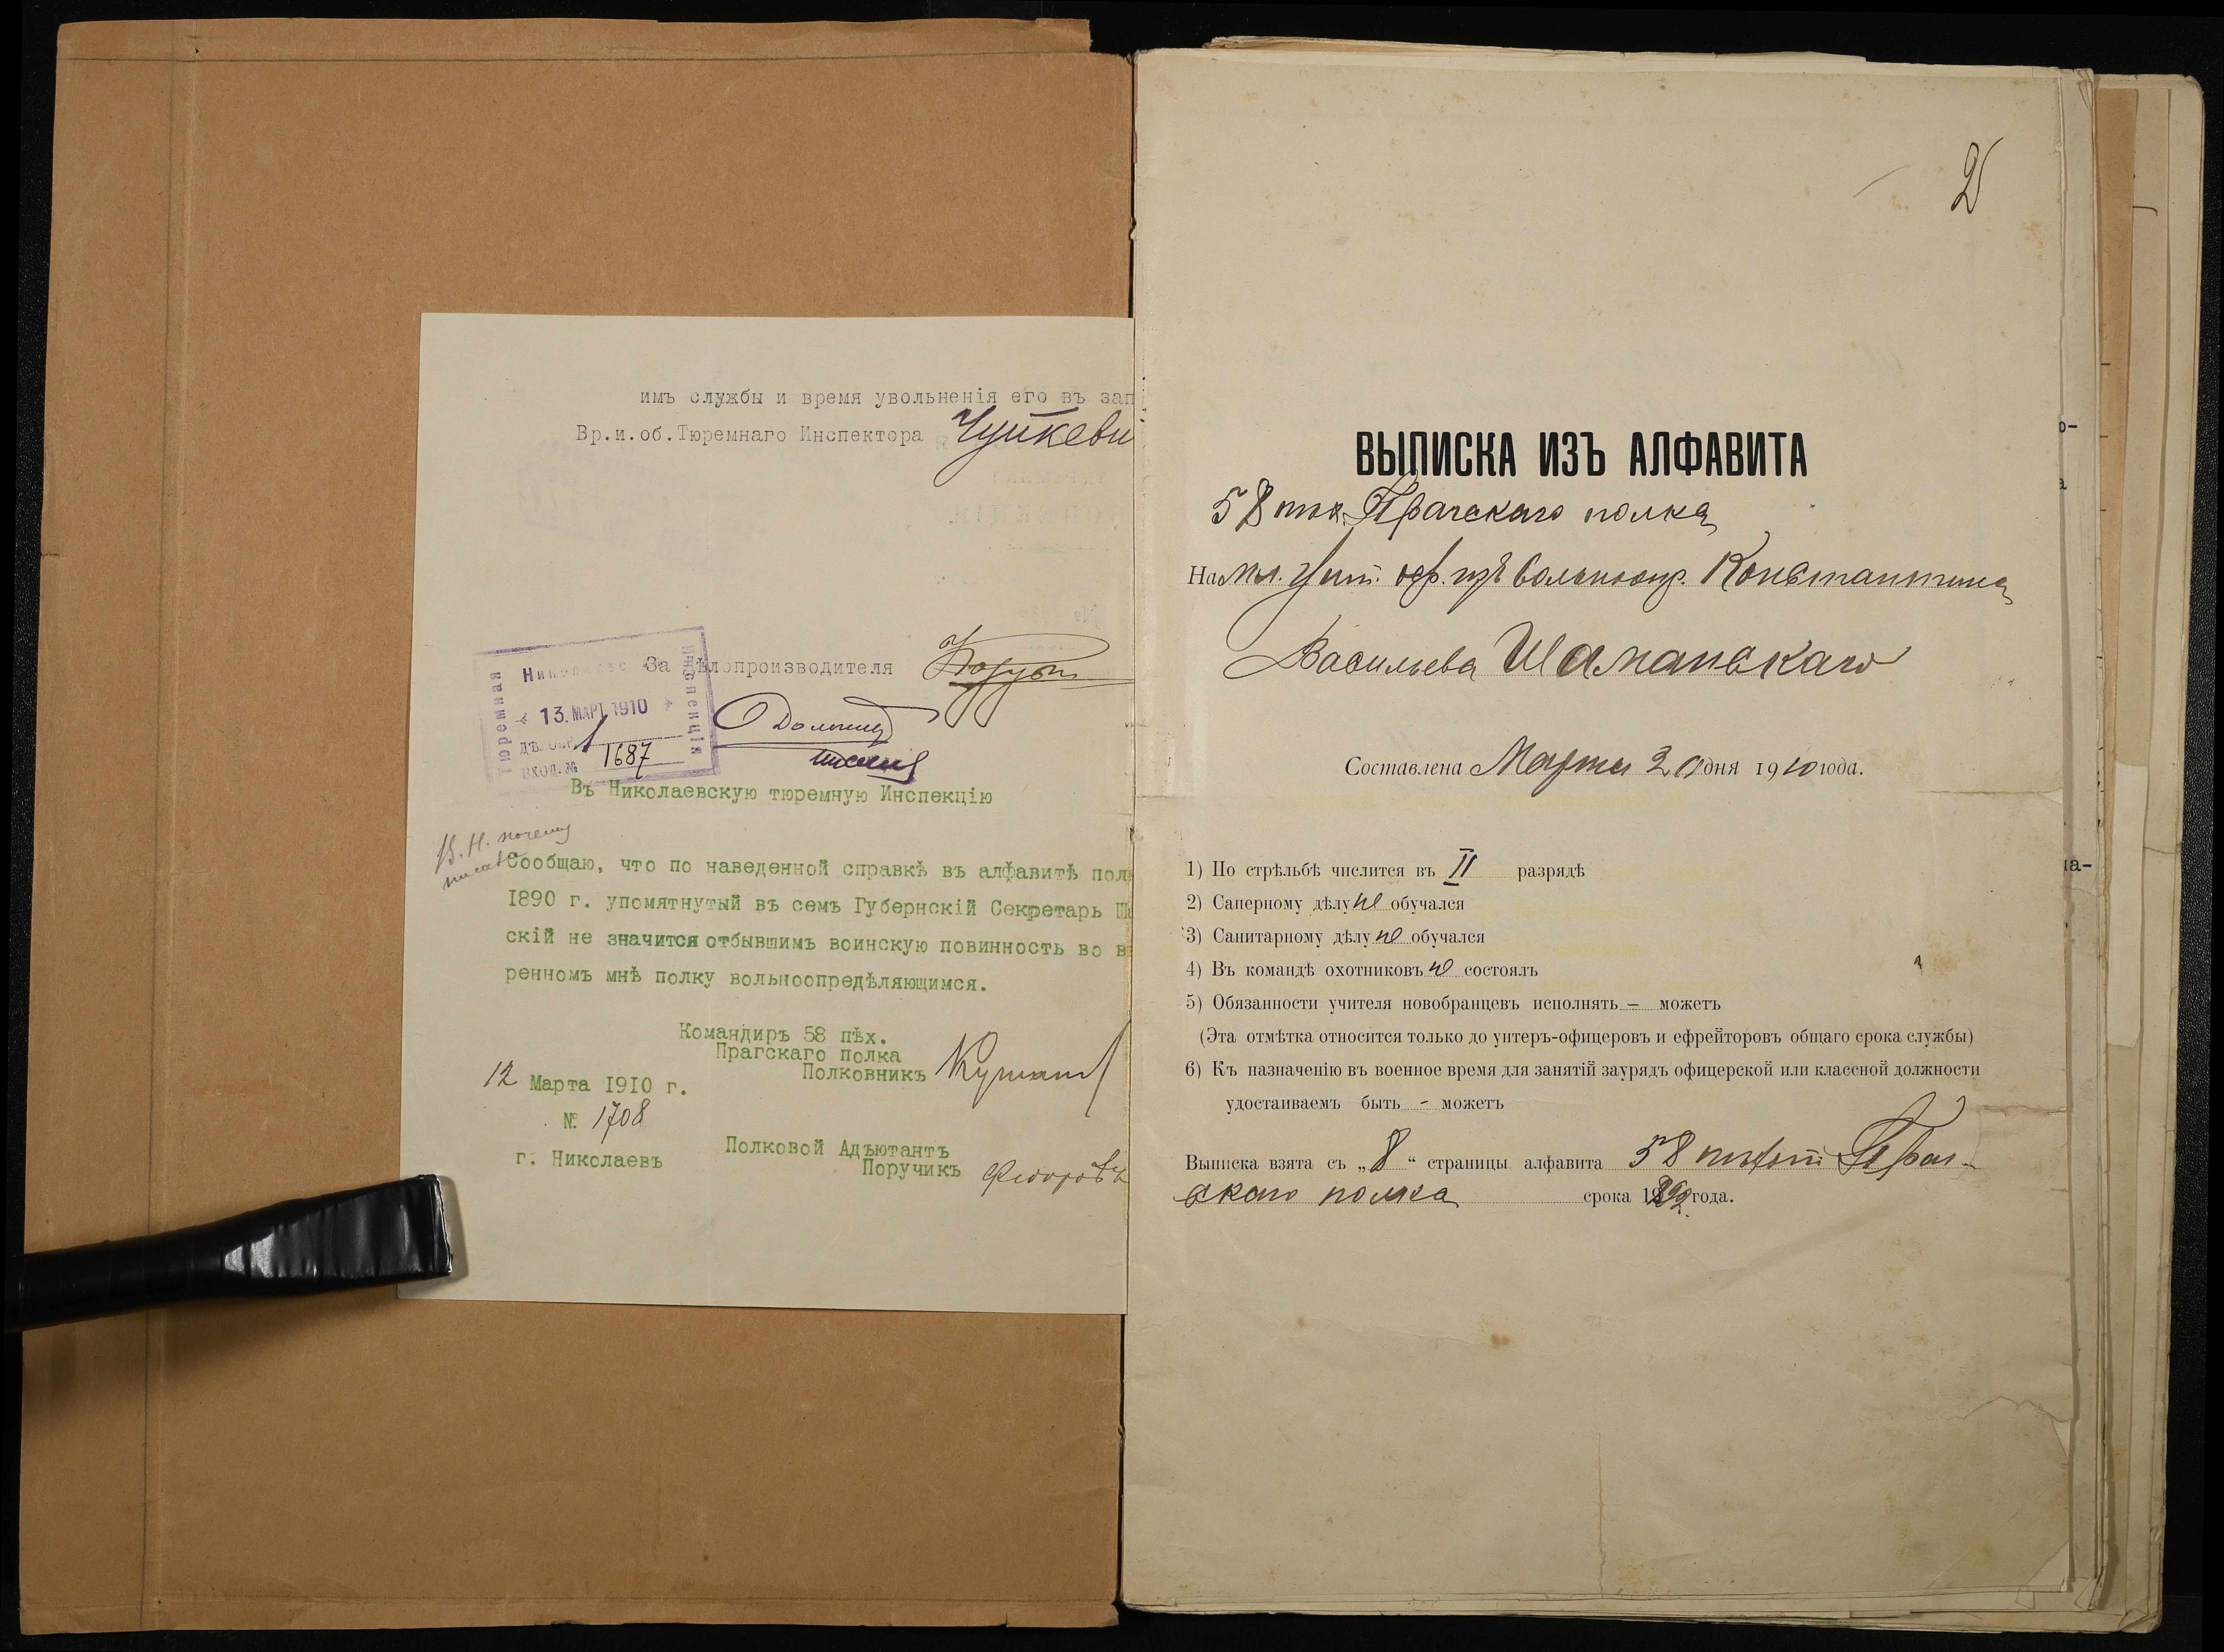 имъ службы и время увольненія его въ зап
Вр.и.об.Тюремнаго Инспектора
За Дѣлопроизводителя
Тюремная
Инспекція
13. МАРТ. 1910
ВХОД. №
1687
Въ Николаевскую тюремную Инспекцію
В. Н. почему
Сообщаю, что по наведенной справкѣ въ алфавитѣ пол
1890 г. упомятнутый въ семъ Губернскій Секретарь Ша
скій не значится отбывшимъ воинскую повинность во вв
ренномъ мнѣ полку вольноопредѣляющимся.
Командиръ 58 пѣх.
Прагскаго полка
Полковникъ
12 Марта 1910 г.
№ 1708
г. Николаевъ
Полковой Адъютантъ
Поручикъ Ѳедоровъ
2
ВЫПИСКА ИЗЪ АЛФАВИТА
58 пѣх. Прагскаго полка
На мл. Унт. оф. изъ вольноопр. Константина
Васильева Шаманскаго
Составлена Марта 20 дня 1910 года.
1) По стрѣльбѣ числится въ II разрядѣ
2) Саперному дѣлу не обучался
3) Санитарному дѣлу не обучался
4) Въ командѣ охотниковъ не состоялъ
5) Обязанности учителя новобранцевъ исполнять — можетъ
(Эта отмѣтка относится только до унтеръ-офицеровъ и ефрейторовъ общаго срока службы)
6) Къ назначенію въ военное время для занятій заурядъ офицерской или классной должности
удостаиваемъ быть - можетъ
Выписка взята съ „8“ страницы алфавита 58 пѣхот Праг-
скаго полка срока 1892 года.